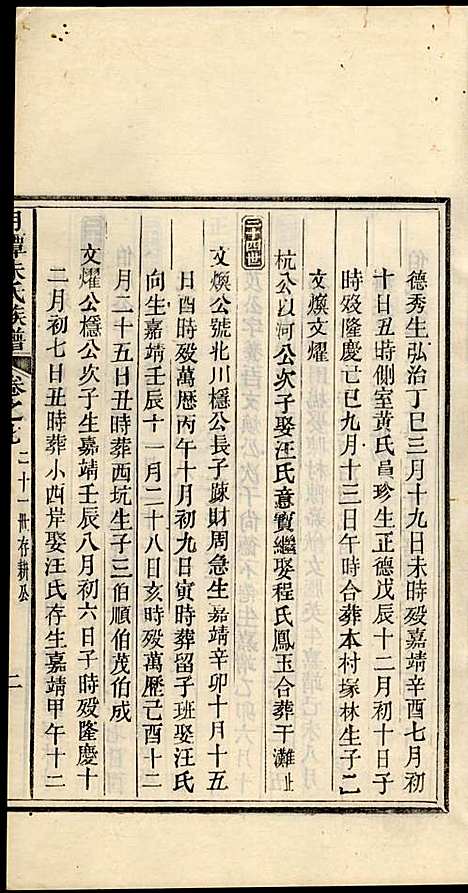 德秀生弘治丁巳三月十九日未時歿嘉靖辛酉七月初
十日丑時側室黃氏昌珍生正德戊辰十二月初十日子
時歿隆慶己巳九月十三日午時合葬本村塚林生子二
文煥文燿
杭公以河公次子娶汪氏意寶繼娶程氏鳳玉合葬干灘止
二十四世
文煥公號北川穩公長子踈財周急生嘉靖辛卯十月十五
日酉時歿萬歷丙午十月初九日寅時葬留子班娶汪氏
向生嘉靖壬辰十一月二十八日亥時歿萬歷己酉十二
月二十五日丑時葬西坑生子三伯順伯茂伯成
文燿公穩公次子生嘉靖壬辰八月初六日子時歿隆慶十
二月初七日丑時葬小西岸娶汪氏存生嘉靖甲午十二
月潭朱氏族譜 卷之 二十一世存耕公 二